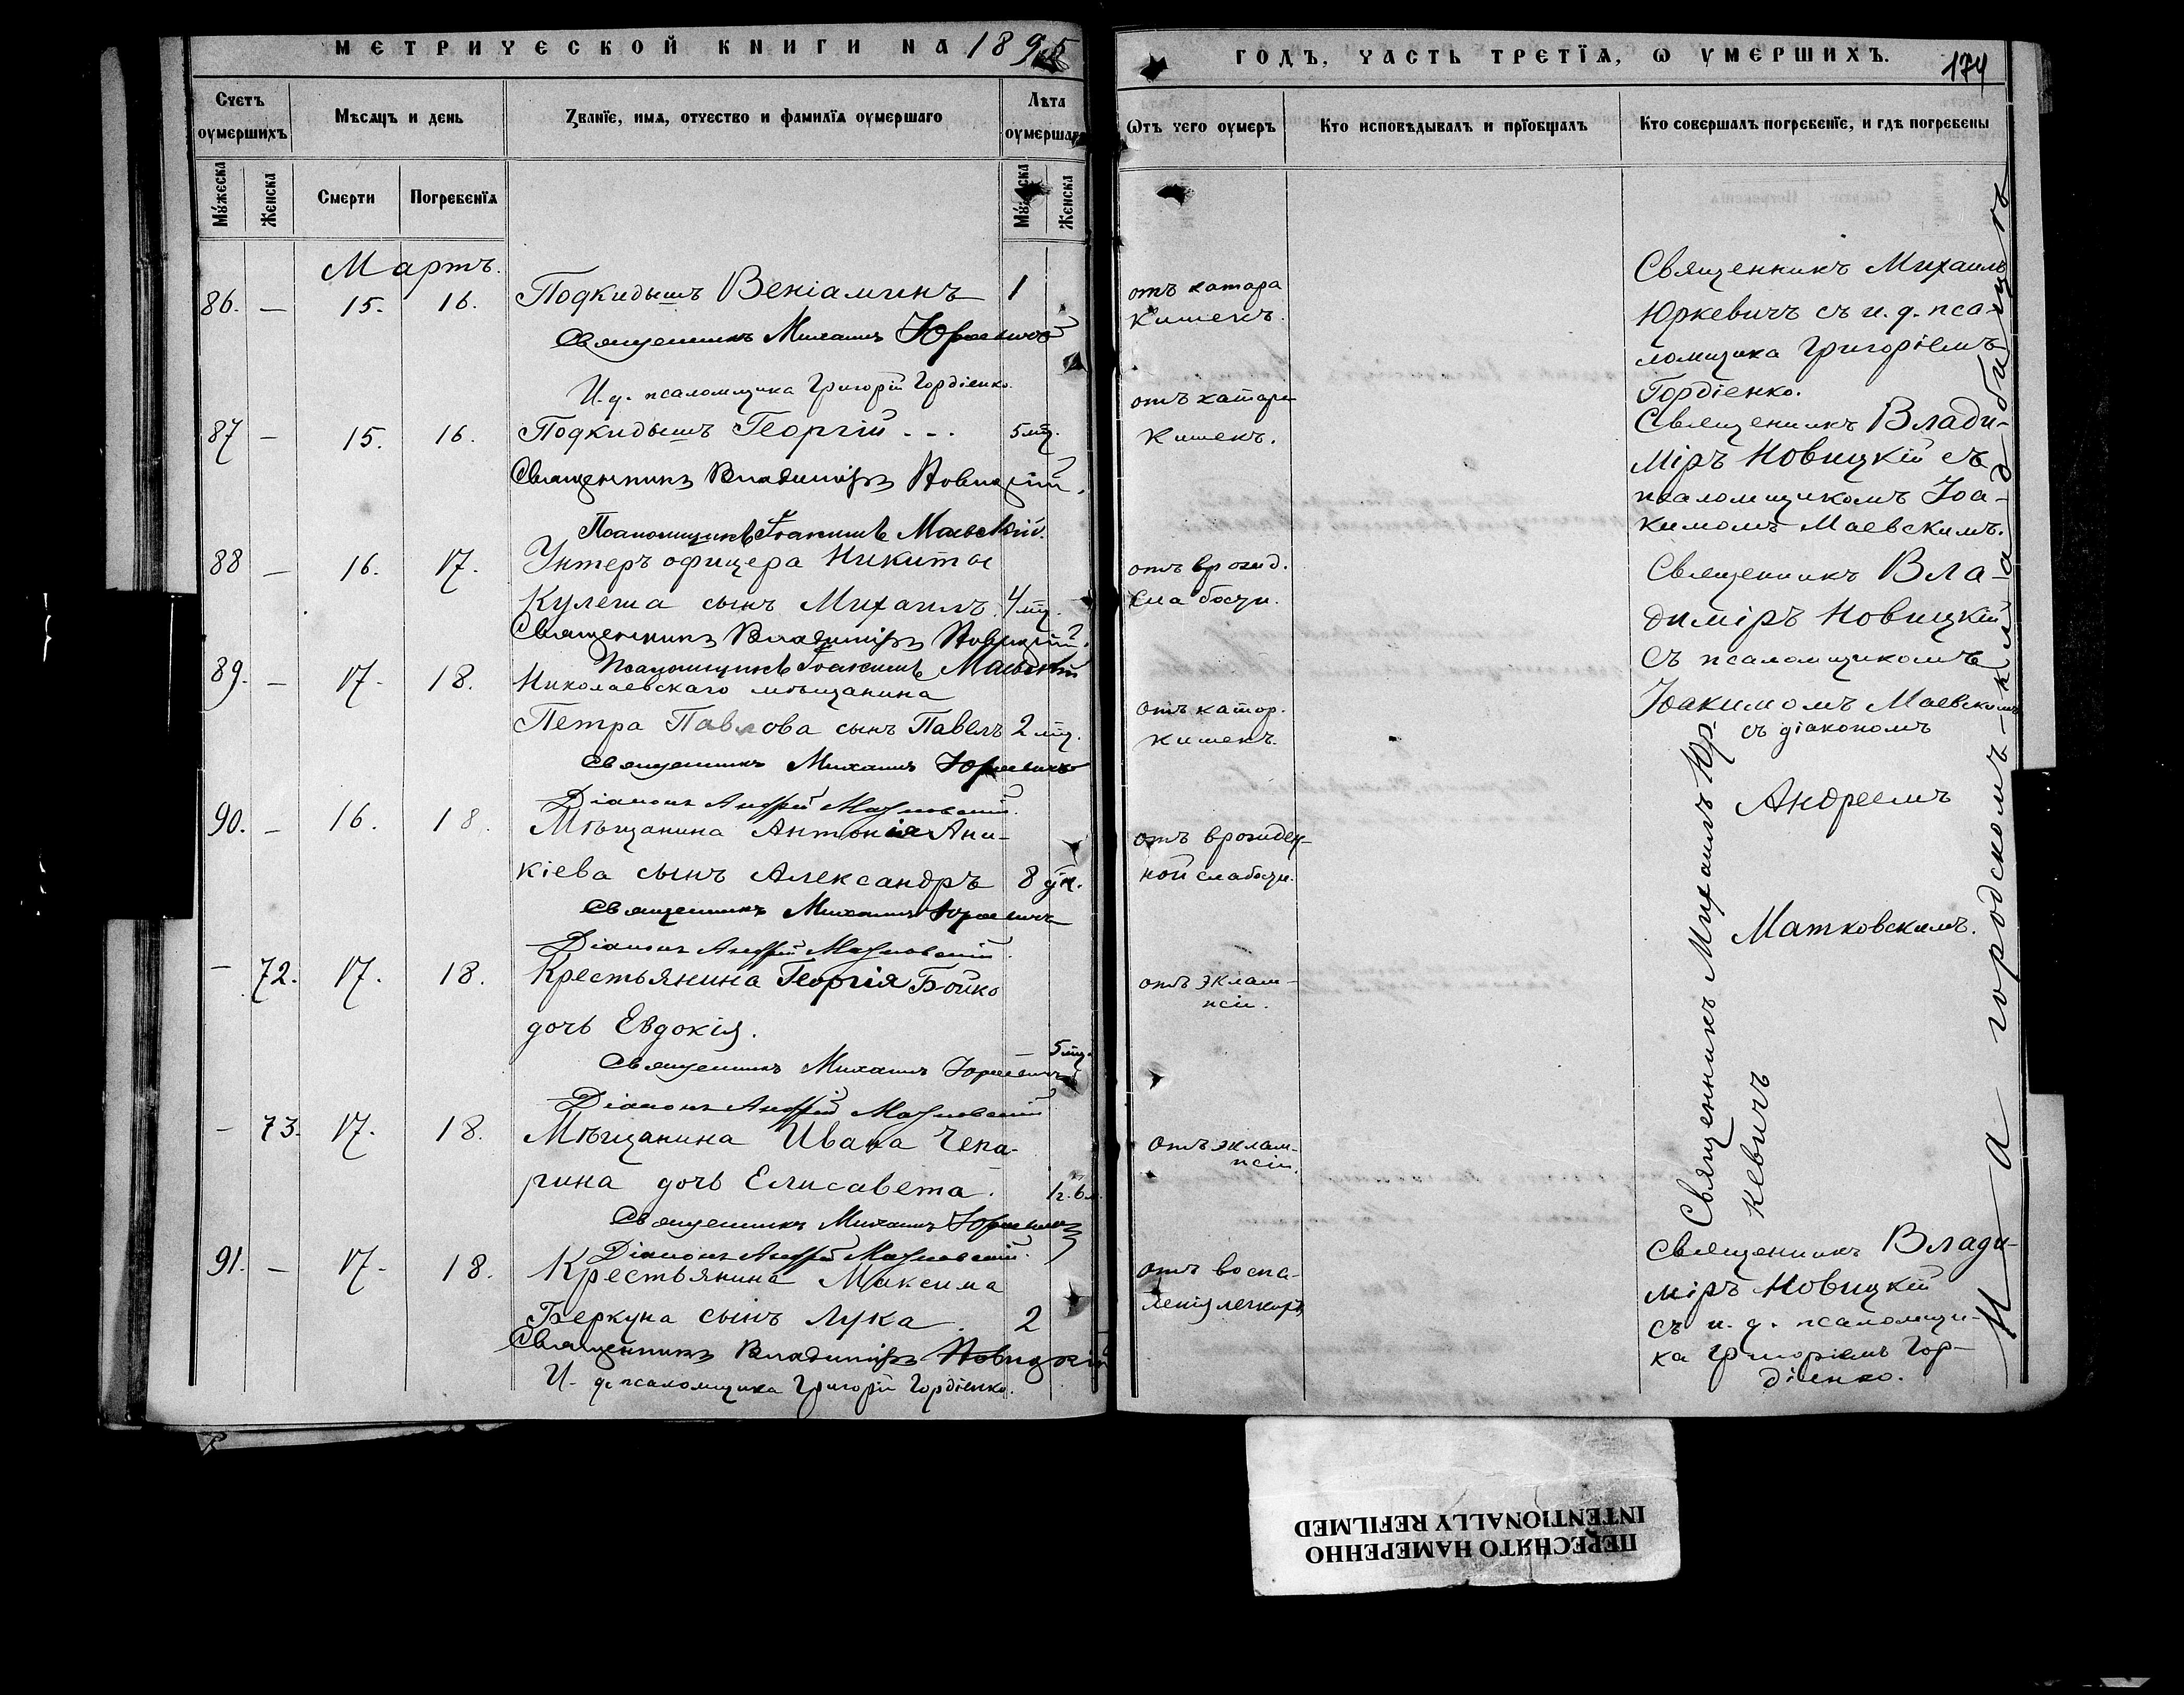 МЕТРИЧЕСКОЙ КНИГИ НА 1895
ГОДЪ, ЧАСТЬ ТРЕТІѦ, Ѡ ОУМЕРШИХЪ.
174
Счетъ оумершихъ
Мѣсѧцъ и день
Званїе, имѧ, отчество и фамилїѧ оумершаго
Лѣта оумершаго
Мужеска
Женска
Смерти
Погребенїѧ
Мужеска
Женска
Ѡтъ чего оумеръ
Кто исповѣдывалъ и прїобщалъ
Кто совершалъ погребенїе, и гдѣ погребены
Мартъ.
86. — 15. 16. Подкидышъ Веніаминъ 1
Священникъ Михаилъ Юркевичъ
И. д. псаломщика Григорій Гордіенко.
87 — 15. 16. Подкидышъ Георгій 5 мц.
Священникъ Владиміръ Новицкій.
Псаломщикъ Іоакимъ Маевскій.
88 — 16. 17. Унтеръ офицера Никиты
Кулеша сынъ Михаилъ. 4 мц.
Священникъ Владиміръ Новицкій.
Псаломщикъ Іоакимъ Маевскій
89. — 17. 18. Николаевскаго мѣщанина
Петра Павлова сынъ Павелъ 2 мц.
Священникъ Михаилъ Юркевичъ
Діаконъ Андрей Матковскій.
90. — 16. 18. Мѣщанина Антонія Ани-
кіева сынъ Александръ 8 дн.
Священникъ Михаилъ Юркевичъ
Діаконъ Андрей Матковскій.
— 72. 17. 18. Крестьянина Георгія Бойко
дочь Евдокія.
5 мц.
Священникъ Михаилъ Юркевичъ
Діаконъ Андрей Матковскій
— 73. 17. 18. Мѣщанина Ивана Чепа-
рина дочь Елисавета. 1 г. 6 м.
Священникъ Михаилъ Юркевичъ
Діаконъ Андрей Матковскій.
91. — 17. 18. Крестьянина Максима
Беркуна сынъ Лука 2
Священникъ Владиміръ Новицкій
И. д. псаломщика Григорій Гордіенко.
отъ катара
кишекъ.
отъ катара
кишекъ.
отъ врожд.
слабости.
отъ катар.
кишекъ.
отъ врожден-
ной слабости.
отъ эклам-
псіи.
отъ эклам-
псіи.
отъ воспа-
ленія легкихъ
Священникъ Михаилъ
Юркевичъ съ и. д. пса-
ломщика Григоріемъ
Гордіенко.
Священникъ Влади-
міръ Новицкій съ
псаломщикомъ Іоа-
кимомъ Маевскимъ.
Священникъ Вла-
диміръ Новицкій
съ псаломщикомъ
Іоакимомъ Маевскимъ
Священникъ Михаилъ Юр-
кевичъ
съ діакономъ
Андреемъ
Матковскимъ.
Священникъ Влади-
міръ Новицкій
съ и. д. псаломщи-
ка Григоріемъ Гор-
діенко.
На городскомъ кладбищѣ
ПЕРЕСНЯТО НАМЕРЕННО
INTENTIONALLY REFILMED